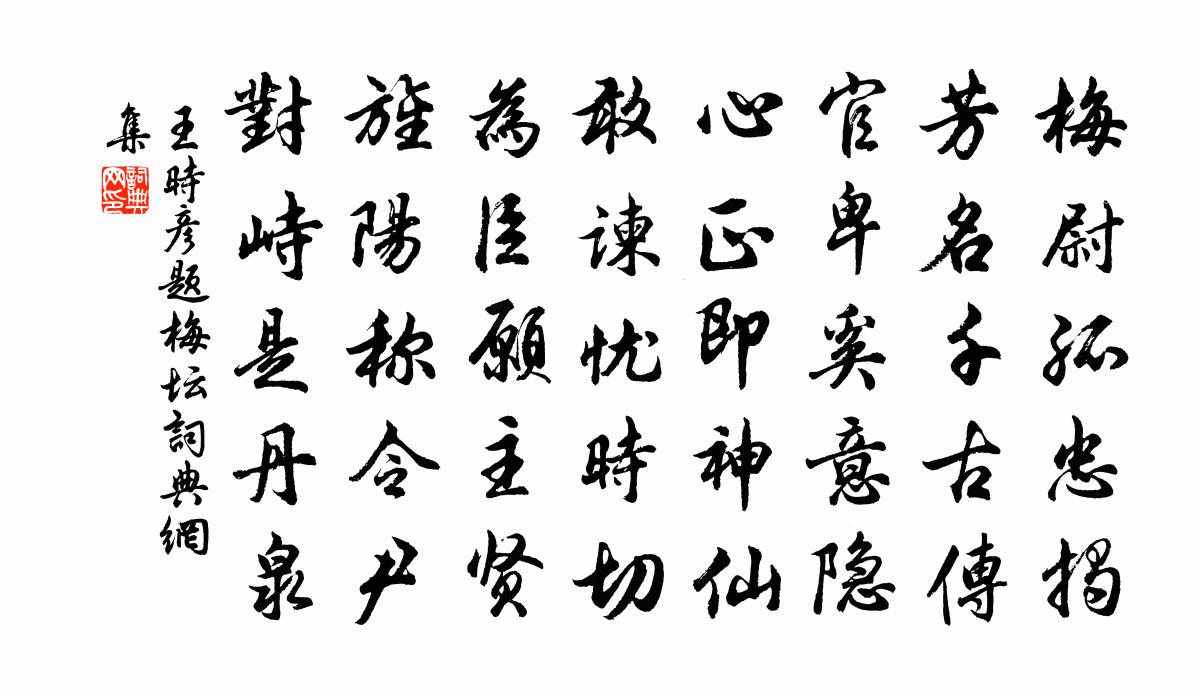 梅尉孤忠揭
芳名千古傳
官卑奚意隐
心正即神仙
敢諫忧時切
為臣願主贤
旌陽称令尹
對峙是丹泉
王時彦题梅坛詞典網
集
詞典
网印